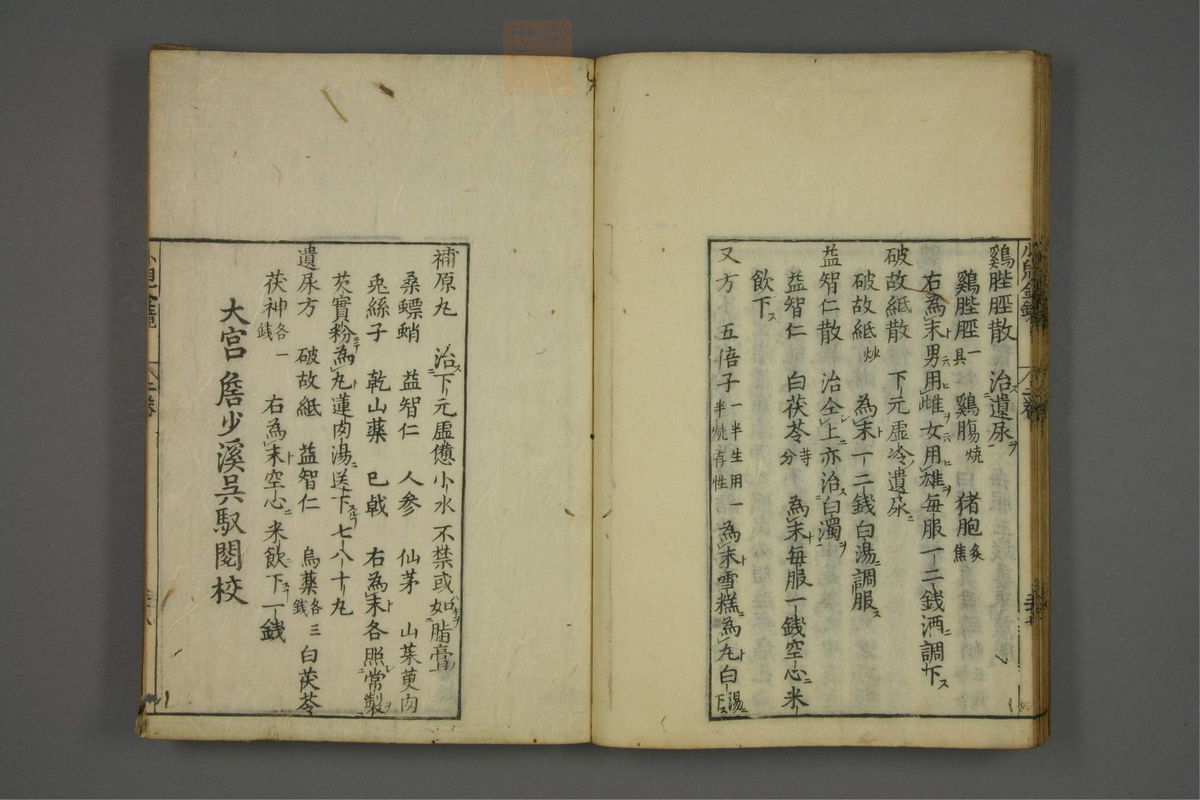 鷄䏶脛散 治遺尿
鷄䏶脛一具 鷄腸焼 猪胞炙焦
右為末男用雌女用雄毎服一二銭酒調下
破故紙散 下元虚冷遺尿
破故紙炒 為末一二銭白湯調服
益智仁散 治仝上亦治白濁
益智仁 白茯苓等分 為末毎服一銭空心米
飲下
又方 五倍子一半生用一半焼存性 為末雪糕為丸白湯下
補原丸 治下元虚憊小水不禁或如脂膏
桑螵蛸 益智仁 人参 仙茅 山茱萸肉
兎絲子 乾山薬 巳戟 右為末各照常製
芡實粉為丸蓮肉湯送下七八十丸
遺尿方 破故紙 益智仁 烏薬各三銭 白茯苓
茯神各一銭 右為末空心米飲下一銭
大宮 詹少溪呉馭閲校